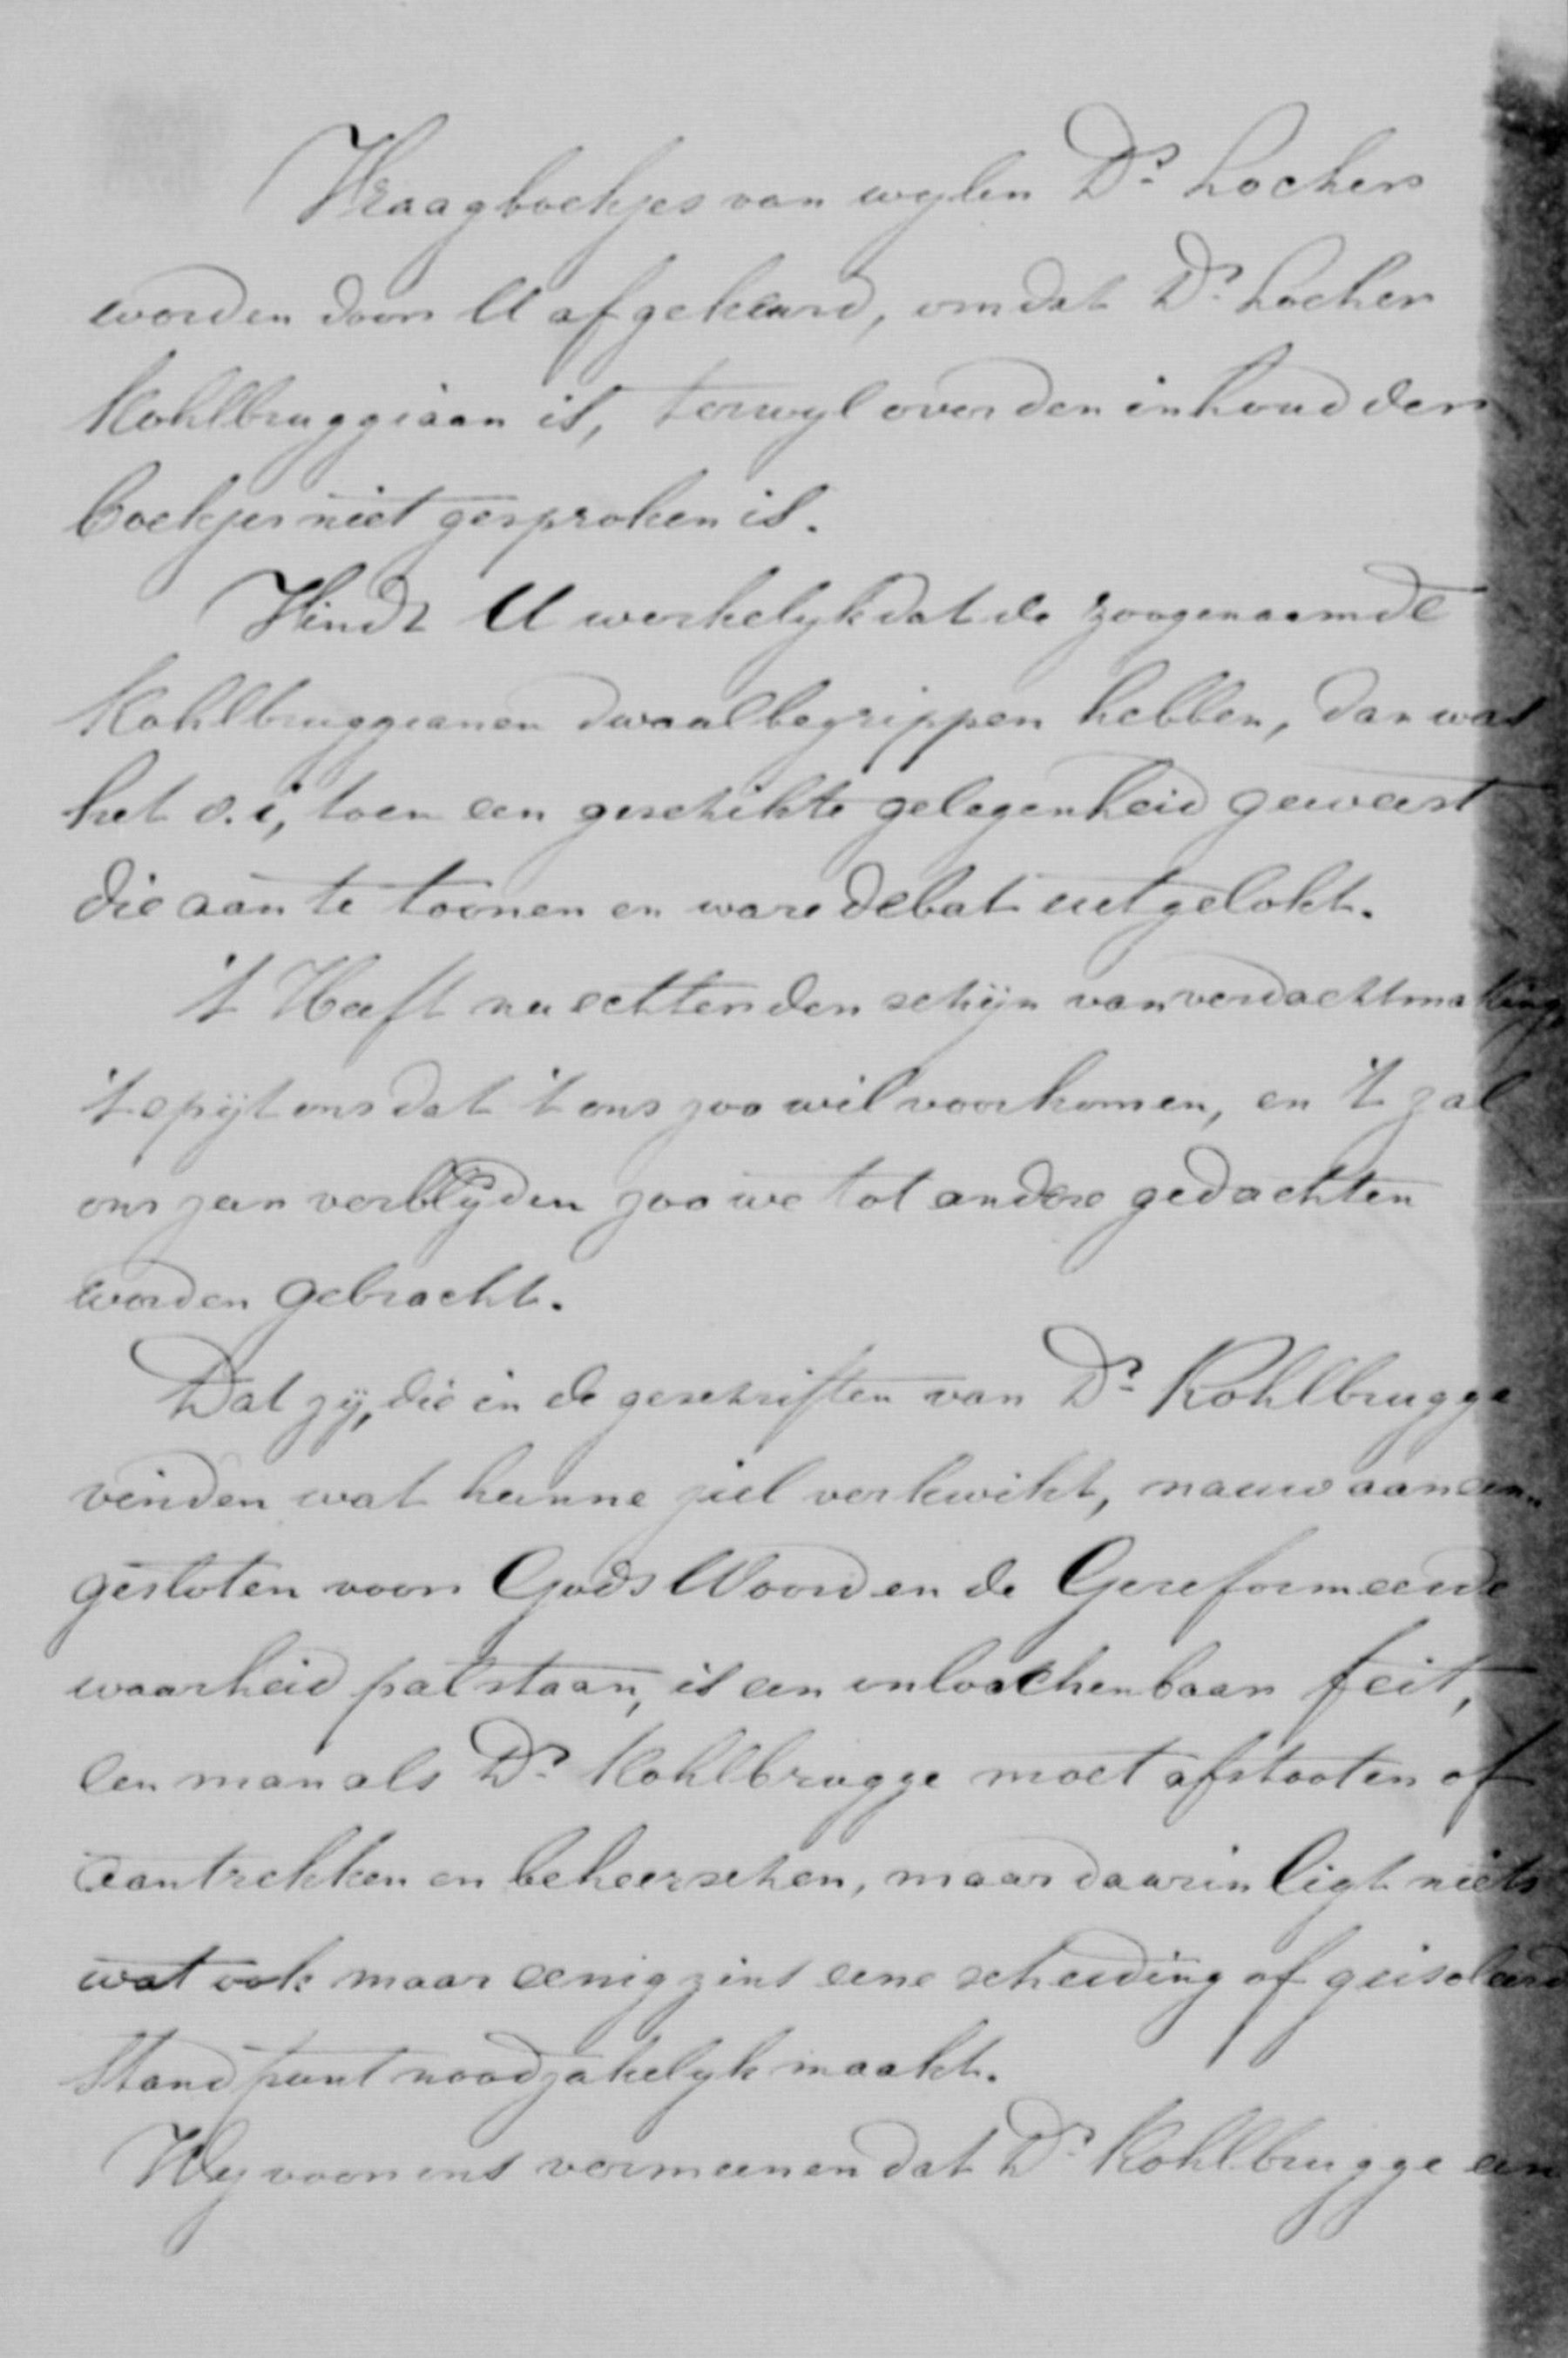 Vraagboekjes van wylen Ds. Locher
worden door U afgekeurd, omdat Ds. Locher
Kohlbruggiaan is, terwyl over den inhoud der
boekjes niet gesproken is.
Vindt U werkelyk dat de zoogenaamde
Kohlbruggianen dwaalbegrippen hebben, dan was
het o.i, toen een geschikte gelegenheid geweest
die aan te toonen en ware debat uitgelokt.
't Heeft nu echter den schijn van verdachtmaking,
't spijt ons dat 't ons zoo wil voorkomen, en 't zal
ons zeer verblijden zoo we tot andere gedachten
worden gebracht.
Dat zij, die in de geschriften van Dr. Kohlbrugge
vinden wat hunne ziel verkwikt, nauw aaneen
gesloten voor Gods Woord en de Gereformeerde
waarheid pal staan, is een onloochenbaar feit,
Een man als Dr. Kohlbrugge moet afstooten of
aantrekken en beheerschen, maar daarin ligt niets
wat ook maar eenigzins eene scheiding of geisoleerd
standpunt noodzakelyk maakt.
Wy voor ons vermeenen dat Dr. Kohlbrugge een